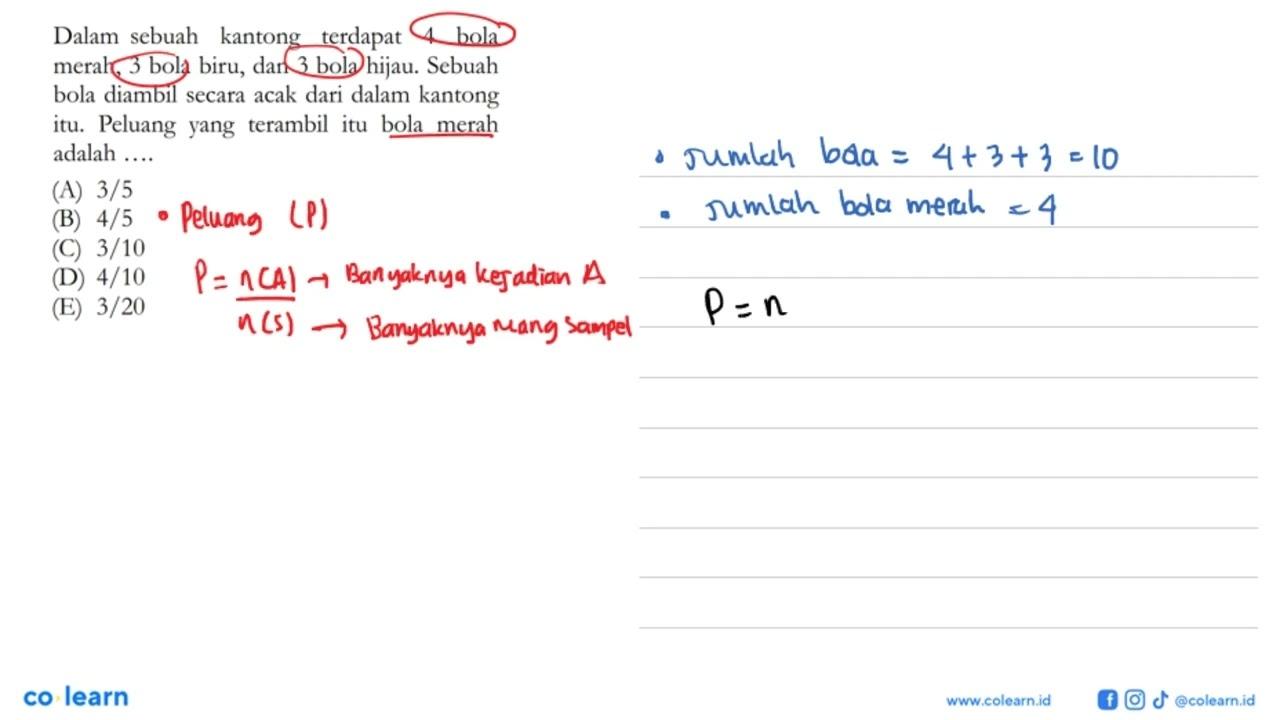 Dalam sebuah kantong terdapat 4 bola
merah, 3 bola biru, dan 3 bola hijau. Sebuah
bola diambil secara acak dari dalam kantong
itu. Peluang yang terambil itu bola merah
adalah ....
(A) 3/5
(B) 4/5
(C) 3/10
(D) 4/10
(E) 3/20
• Peluang (P)
P = n(A) → Banyaknya kejadian A
n(S) → Banyaknya ruang sampel
• Jumlah bola = 4 + 3 + 3 = 10
• Jumlah bola merah = 4
P = n
co learn
www.colearn.id
@colearn.id